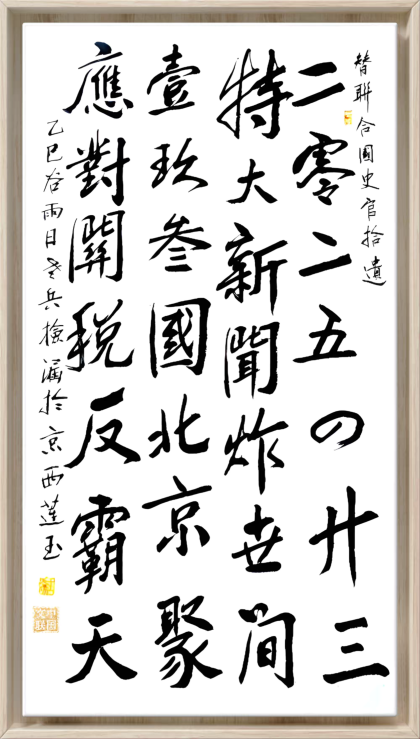 替聯合國史官拾遺
二零二五の廿三
特大新聞炸世间
壹玖叁國北京聚
應對關税反霸天
乙巳谷雨日老兵撿漏於京西蓮玉